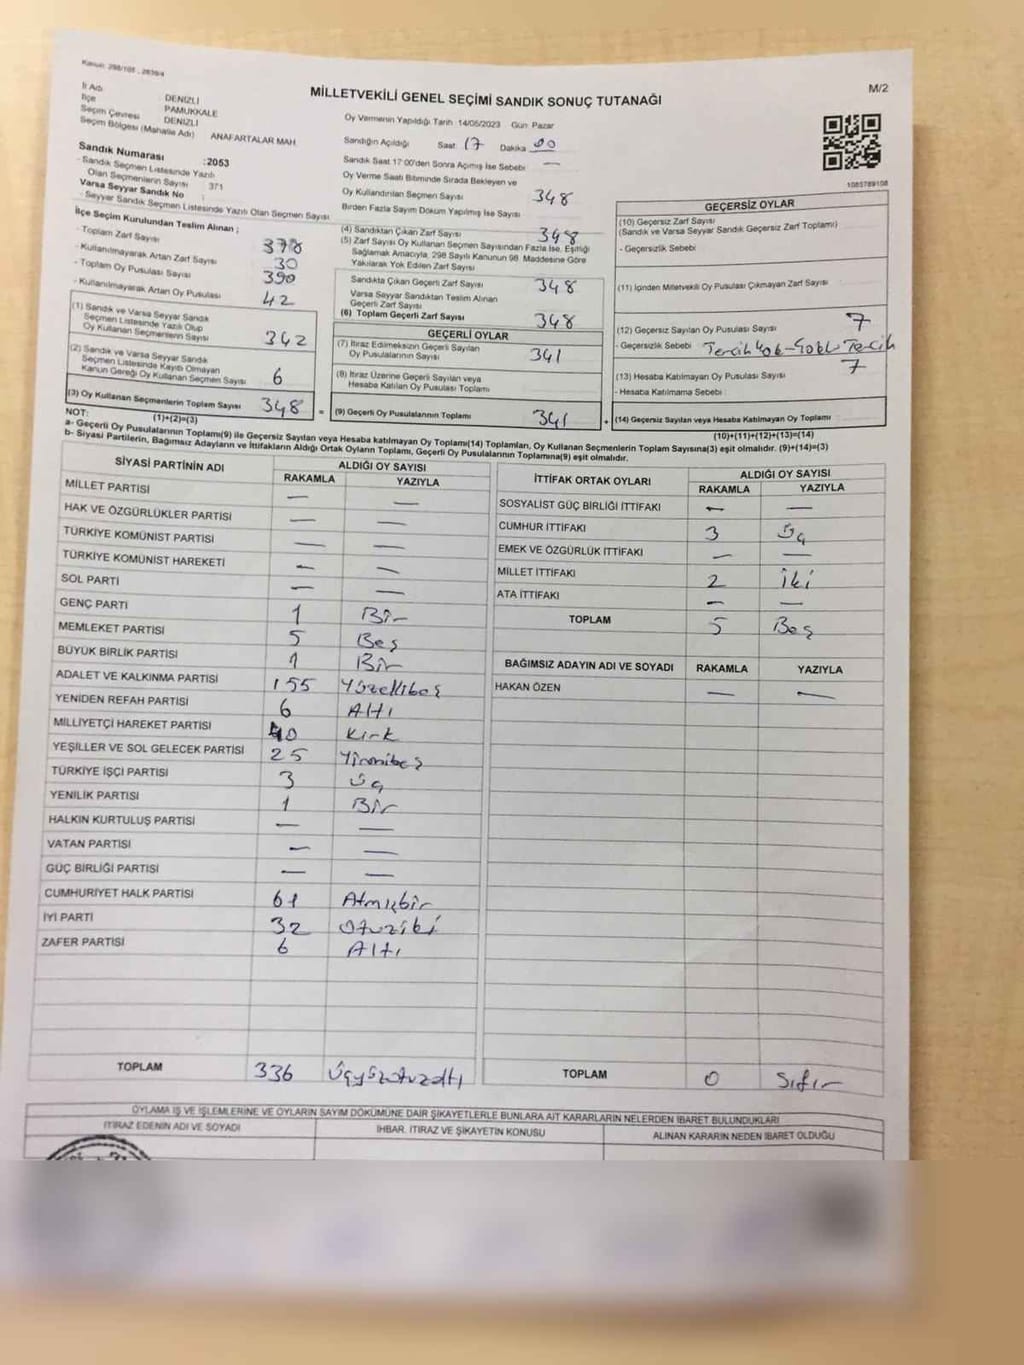 Kanun: 298/105 , 2839/4
M/2
MİLLETVEKİLİ GENEL SEÇİMİ SANDIK SONUÇ TUTANAĞI
İl Adı : DENİZLİ
İlçe : PAMUKKALE
Seçim Çevresi : DENİZLİ
Seçim Bölgesi (Mahalle Adı) : ANAFARTALAR MAH.
Sandık Numarası :2053
- Sandık Seçmen Listesinde Yazılı
Olan Seçmenlerin Sayısı : 371
Varsa Seyyar Sandık No :
- Seyyar Sandık Seçmen Listesinde Yazılı Olan Seçmen Sayısı
İlçe Seçim Kurulundan Teslim Alınan ;
- Toplam Zarf Sayısı 378
- Kullanılmayarak Artan Zarf Sayısı 30
- Toplam Oy Pusulası Sayısı 390
- Kullanılmayarak Artan Oy Pusulası 42
(1) Sandık ve Varsa Seyyar Sandık
Seçmen Listesinde Yazılı Olup
Oy Kullanan Seçmenlerin Sayısı 342
(2) Sandık ve Varsa Seyyar Sandık
Seçmen Listesinde Kayıtlı Olmayan
Kanun Gereği Oy Kullanan Seçmen Sayısı 6
(3) Oy Kullanan Seçmenlerin Toplam Sayısı 348 =
(1)+(2)=(3)
Oy Vermenin Yapıldığı Tarih :14/05/2023 Gün: Pazar
Sandığın Açıldığı Saat: 17 Dakika 00
Sandık Saat 17:00'den Sonra Açılmış İse Sebebi —
Oy Verme Saati Bitiminde Sırada Bekleyen ve
Oy Kullandırılan Seçmen Sayısı 348
Birden Fazla Sayım Döküm Yapılmış İse Sayısı
(4) Sandıktan Çıkan Zarf Sayısı 348
(5) Zarf Sayısı Oy Kullanan Seçmen Sayısından Fazla İse, Eşitliği
Sağlamak Amacıyla, 298 Sayılı Kanunun 98. Maddesine Göre
Yakılarak Yok Edilen Zarf Sayısı
Sandıkta Çıkan Geçerli Zarf Sayısı 348
Varsa Seyyar Sandıktan Teslim Alınan
Geçerli Zarf Sayısı
(6) Toplam Geçerli Zarf Sayısı 348
GEÇERLİ OYLAR
(7) İtiraz Edilmeksizin Geçerli Sayılan
Oy Pusulalarının Sayısı 341
(8) İtiraz Üzerine Geçerli Sayılan veya
Hesaba Katılan Oy Pusulası Toplamı
(9) Geçerli Oy Pusulalarının Toplamı 341 +
1085789108
GEÇERSİZ OYLAR
(10) Geçersiz Zarf Sayısı
(Sandık ve Varsa Seyyar Sandık Geçersiz Zarf Toplamı)
- Geçersizlik Sebebi
(11) İçinden Milletvekili Oy Pusulası Çıkmayan Zarf Sayısı
(12) Geçersiz Sayılan Oy Pusulası Sayısı 7
- Geçersizlik Sebebi Tercih Yok - Çoklu Tercih
7
(13) Hesaba Katılmayan Oy Pusulası Sayısı
- Hesaba Katılmama Sebebi
(14) Geçersiz Sayılan veya Hesaba Katılmayan Oy Toplamı
(10)+(11)+(12)+(13)=(14)
NOT:
a- Geçerli Oy Pusulalarının Toplamı(9) ile Geçersiz Sayılan veya Hesaba katılmayan Oy Toplamı(14) Toplamları, Oy Kullanan Seçmenlerin Toplam Sayısına(3) eşit olmalıdır. (9)+(14)=(3)
b- Siyasi Partilerin, Bağımsız Adayların ve İttifakların Aldığı Ortak Oyların Toplamı, Geçerli Oy Pusulalarının Toplamına(9) eşit olmalıdır.
SİYASİ PARTİNİN ADI ALDIĞI OY SAYISI
RAKAMLA YAZIYLA
MİLLET PARTİSİ — —
HAK VE ÖZGÜRLÜKLER PARTİSİ — —
TÜRKİYE KOMÜNİST PARTİSİ — —
TÜRKİYE KOMÜNİST HAREKETİ — —
SOL PARTİ — —
GENÇ PARTİ 1 Bir
MEMLEKET PARTİSİ 5 Beş
BÜYÜK BİRLİK PARTİSİ 1 Bir
ADALET VE KALKINMA PARTİSİ 155 Yüzellibeş
YENİDEN REFAH PARTİSİ 6 Altı
MİLLİYETÇİ HAREKET PARTİSİ 40 Kırk
YEŞİLLER VE SOL GELECEK PARTİSİ 25 Yirmibeş
TÜRKİYE İŞÇİ PARTİSİ 3 Üç
YENİLİK PARTİSİ 1 Bir
HALKIN KURTULUŞ PARTİSİ — —
VATAN PARTİSİ — —
GÜÇ BİRLİĞİ PARTİSİ — —
CUMHURİYET HALK PARTİSİ 61 Atmışbir
İYİ PARTİ 32 Otuziki
ZAFER PARTİSİ 6 Altı
TOPLAM 336 Üçyüzotuzaltı
İTTİFAK ORTAK OYLARI ALDIĞI OY SAYISI
RAKAMLA YAZIYLA
SOSYALİST GÜÇ BİRLİĞİ İTTİFAKI — —
CUMHUR İTTİFAKI 3 Üç
EMEK VE ÖZGÜRLÜK İTTİFAKI — —
MİLLET İTTİFAKI 2 İki
ATA İTTİFAKI — —
TOPLAM 5 Beş
BAĞIMSIZ ADAYIN ADI VE SOYADI RAKAMLA YAZIYLA
HAKAN ÖZEN — —
TOPLAM 0 Sıfır
OYLAMA İŞ VE İŞLEMLERİNE VE OYLARIN SAYIM DÖKÜMÜNE DAİR ŞİKAYETLERLE BUNLARA AİT KARARLARIN NELERDEN İBARET BULUNDUKLARI
İTİRAZ EDENİN ADI VE SOYADI İHBAR, İTİRAZ VE ŞİKAYETİN KONUSU ALINAN KARARIN NEDEN İBARET OLDUĞU